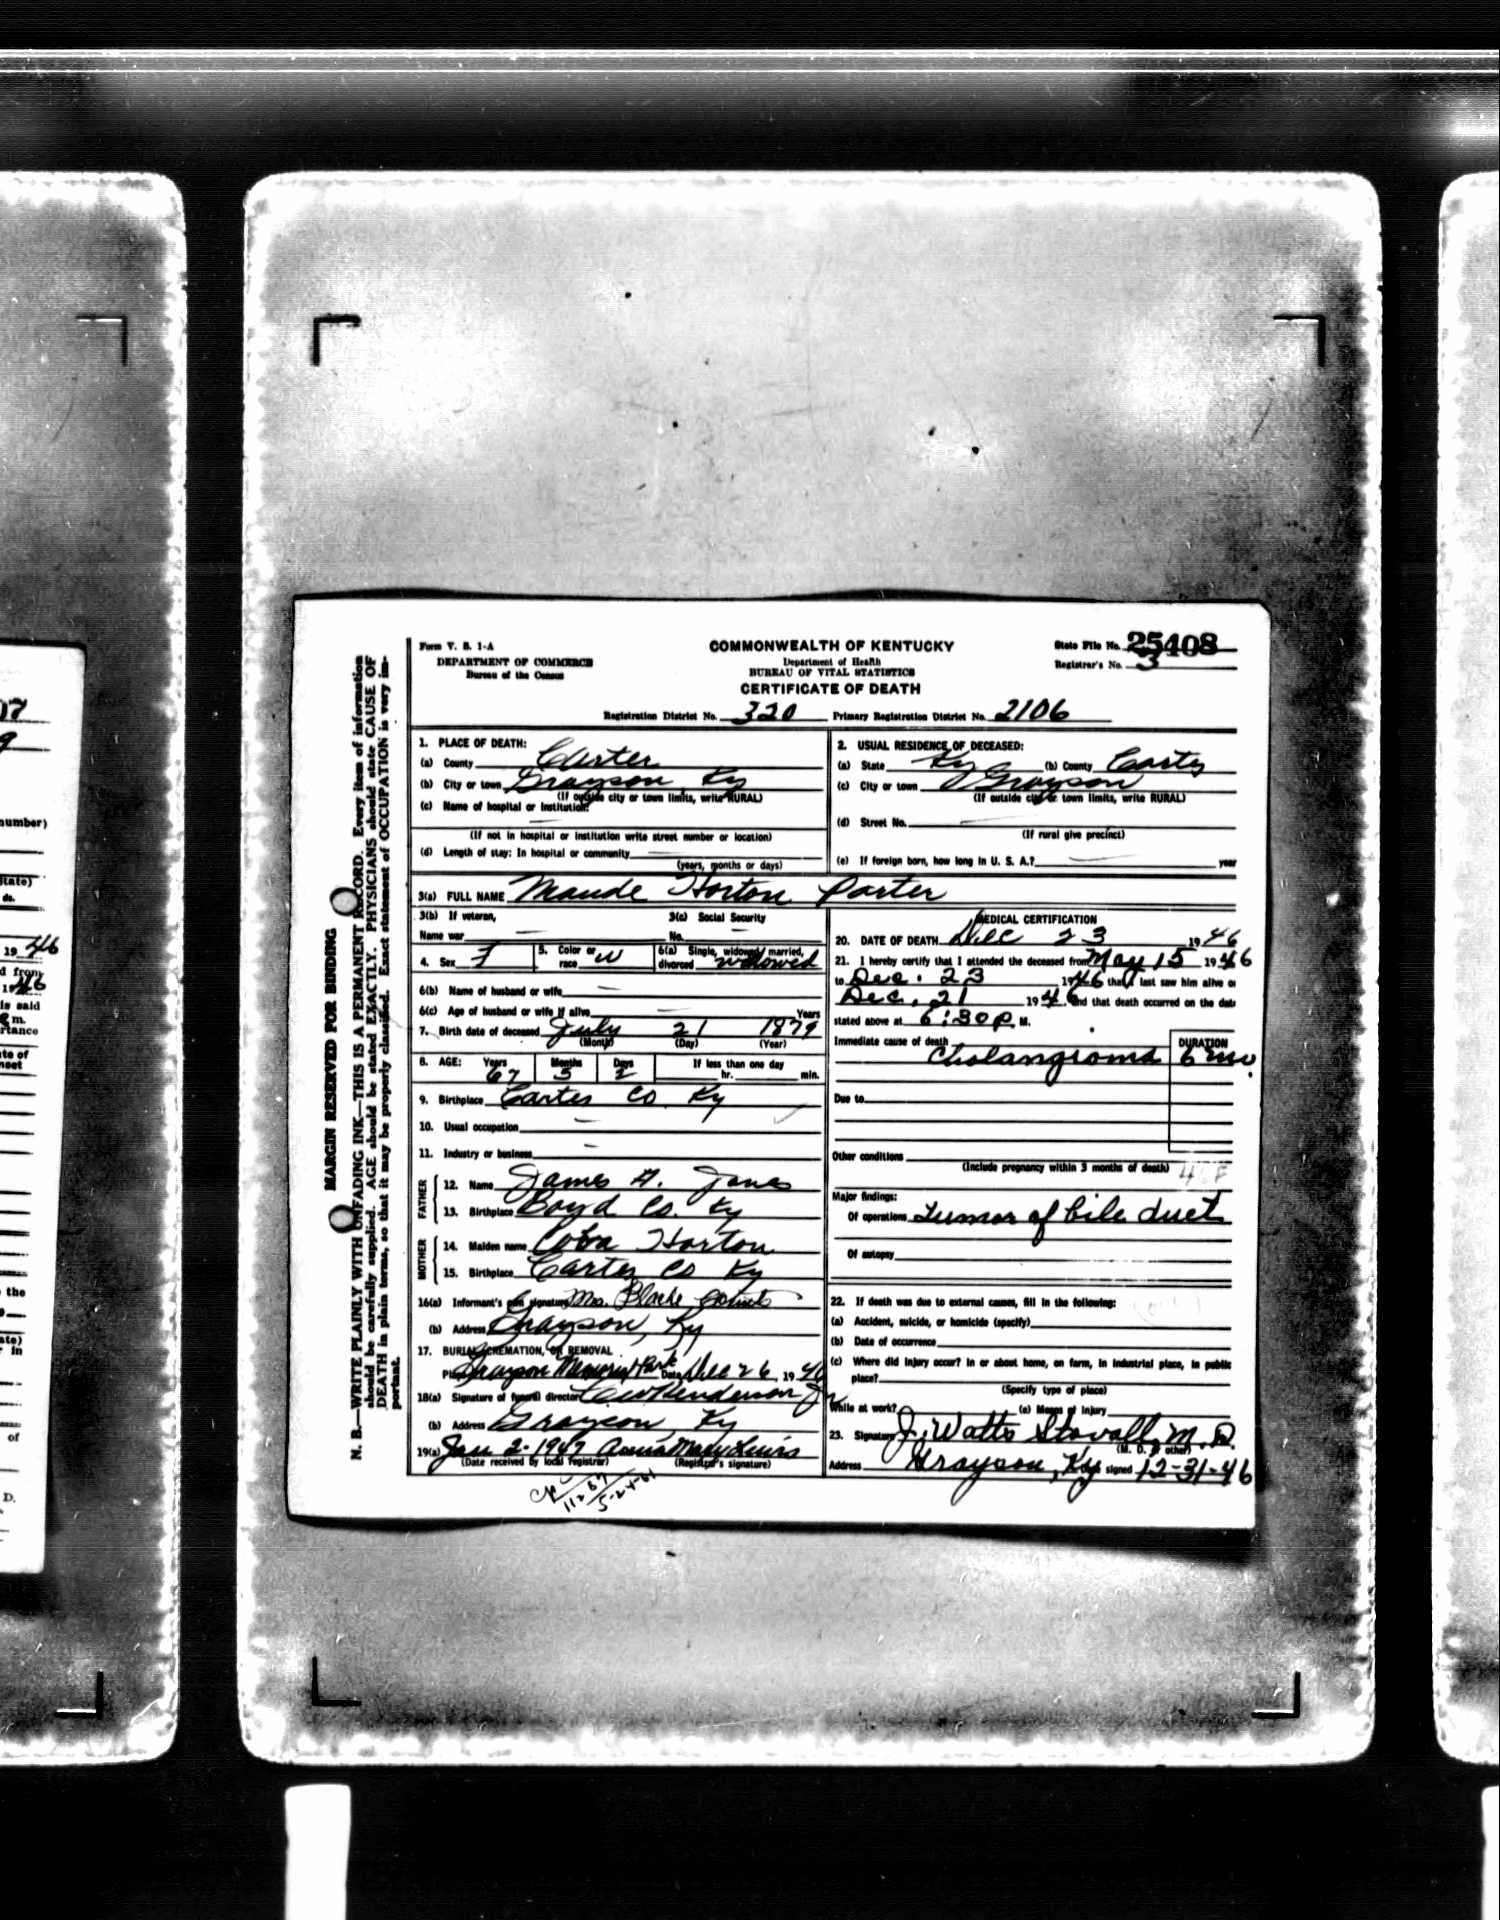 Form V. S. 1-A
DEPARTMENT OF COMMERCE
Bureau of the Census
COMMONWEALTH OF KENTUCKY
Department of Health
BUREAU OF VITAL STATISTICS
CERTIFICATE OF DEATH
State File No. 25408
Registrar's No. 3
Registration District No. 320 Primary Registration District No. 2106
MARGIN RESERVED FOR BINDING
N. B.—WRITE PLAINLY WITH UNFADING INK—THIS IS A PERMANENT RECORD. Every item of information
should be carefully supplied. AGE should be stated EXACTLY. PHYSICIANS should state CAUSE OF
DEATH in plain terms, so that it may be properly classified. Exact statement of OCCUPATION is very im-
portant.
1. PLACE OF DEATH:
(a) County Carter
(b) City or town Grayson Ky
(If outside city or town limits, write RURAL)
(c) Name of hospital or institution:
(If not in hospital or institution write street number or location)
(d) Length of stay: In hospital or community
(years, months or days)
2. USUAL RESIDENCE OF DECEASED:
(a) State Ky (b) County Carter
(c) City or town Grayson
(If outside city or town limits, write RURAL)
(d) Street No.
(If rural give precinct)
(e) If foreign born, how long in U. S. A.? year
3(a) FULL NAME Maude Horton Porter
3(b) If veteran,
Name war
3(c) Social Security
No.
4. Sex F
5. Color or
race W
6(a) Single, widowed, married,
divorced widowed
6(b) Name of husband or wife
6(c) Age of husband or wife if alive Years
7. Birth date of deceased July 21 1879
(Month) (Day) (Year)
8. AGE: Years Months Days If less than one day
67 5 2 hr. min.
9. Birthplace Carter Co Ky
10. Usual occupation
11. Industry or business
FATHER
12. Name James A. Jones
13. Birthplace Boyd Co. Ky
MOTHER
14. Maiden name Horton
15. Birthplace Carter Co Ky
16(a) Informant's own signature Mrs.
(b) Address Grayson, Ky
17. BURIAL, CREMATION, OR REMOVAL
Place Grayson Memorial Park Date Dec 26, 1946
18(a) Signature of funeral director C W Henderson Jr
(b) Address Grayson, Ky
19(a) Jan 2-1947 Anna Mary Lewis
(Date received by local registrar) (Registrar's signature)
MEDICAL CERTIFICATION
20. DATE OF DEATH Dec 23 1946
21. I hereby certify that I attended the deceased from May 15 1946
to Dec. 23 1946 that I last saw him alive on
Dec. 21 1946 and that death occurred on the date
stated above at 6:30 P. M.
Immediate cause of death DURATION
Cholangioma 6 mo.
Due to
Other conditions
(Include pregnancy within 3 months of death)
Major findings:
Of operations Tumor of bile duct
Of autopsy
22. If death was due to external causes, fill in the following:
(a) Accident, suicide, or homicide (specify)
(b) Date of occurrence
(c) Where did injury occur? In or about home, on farm, in industrial place, in public
place?
(Specify type of place)
While at work? (e) Means of injury
23. Signature J. Watts Stovall, M. D.
(M. D. or other)
Address Grayson, Ky signed 12-31-46